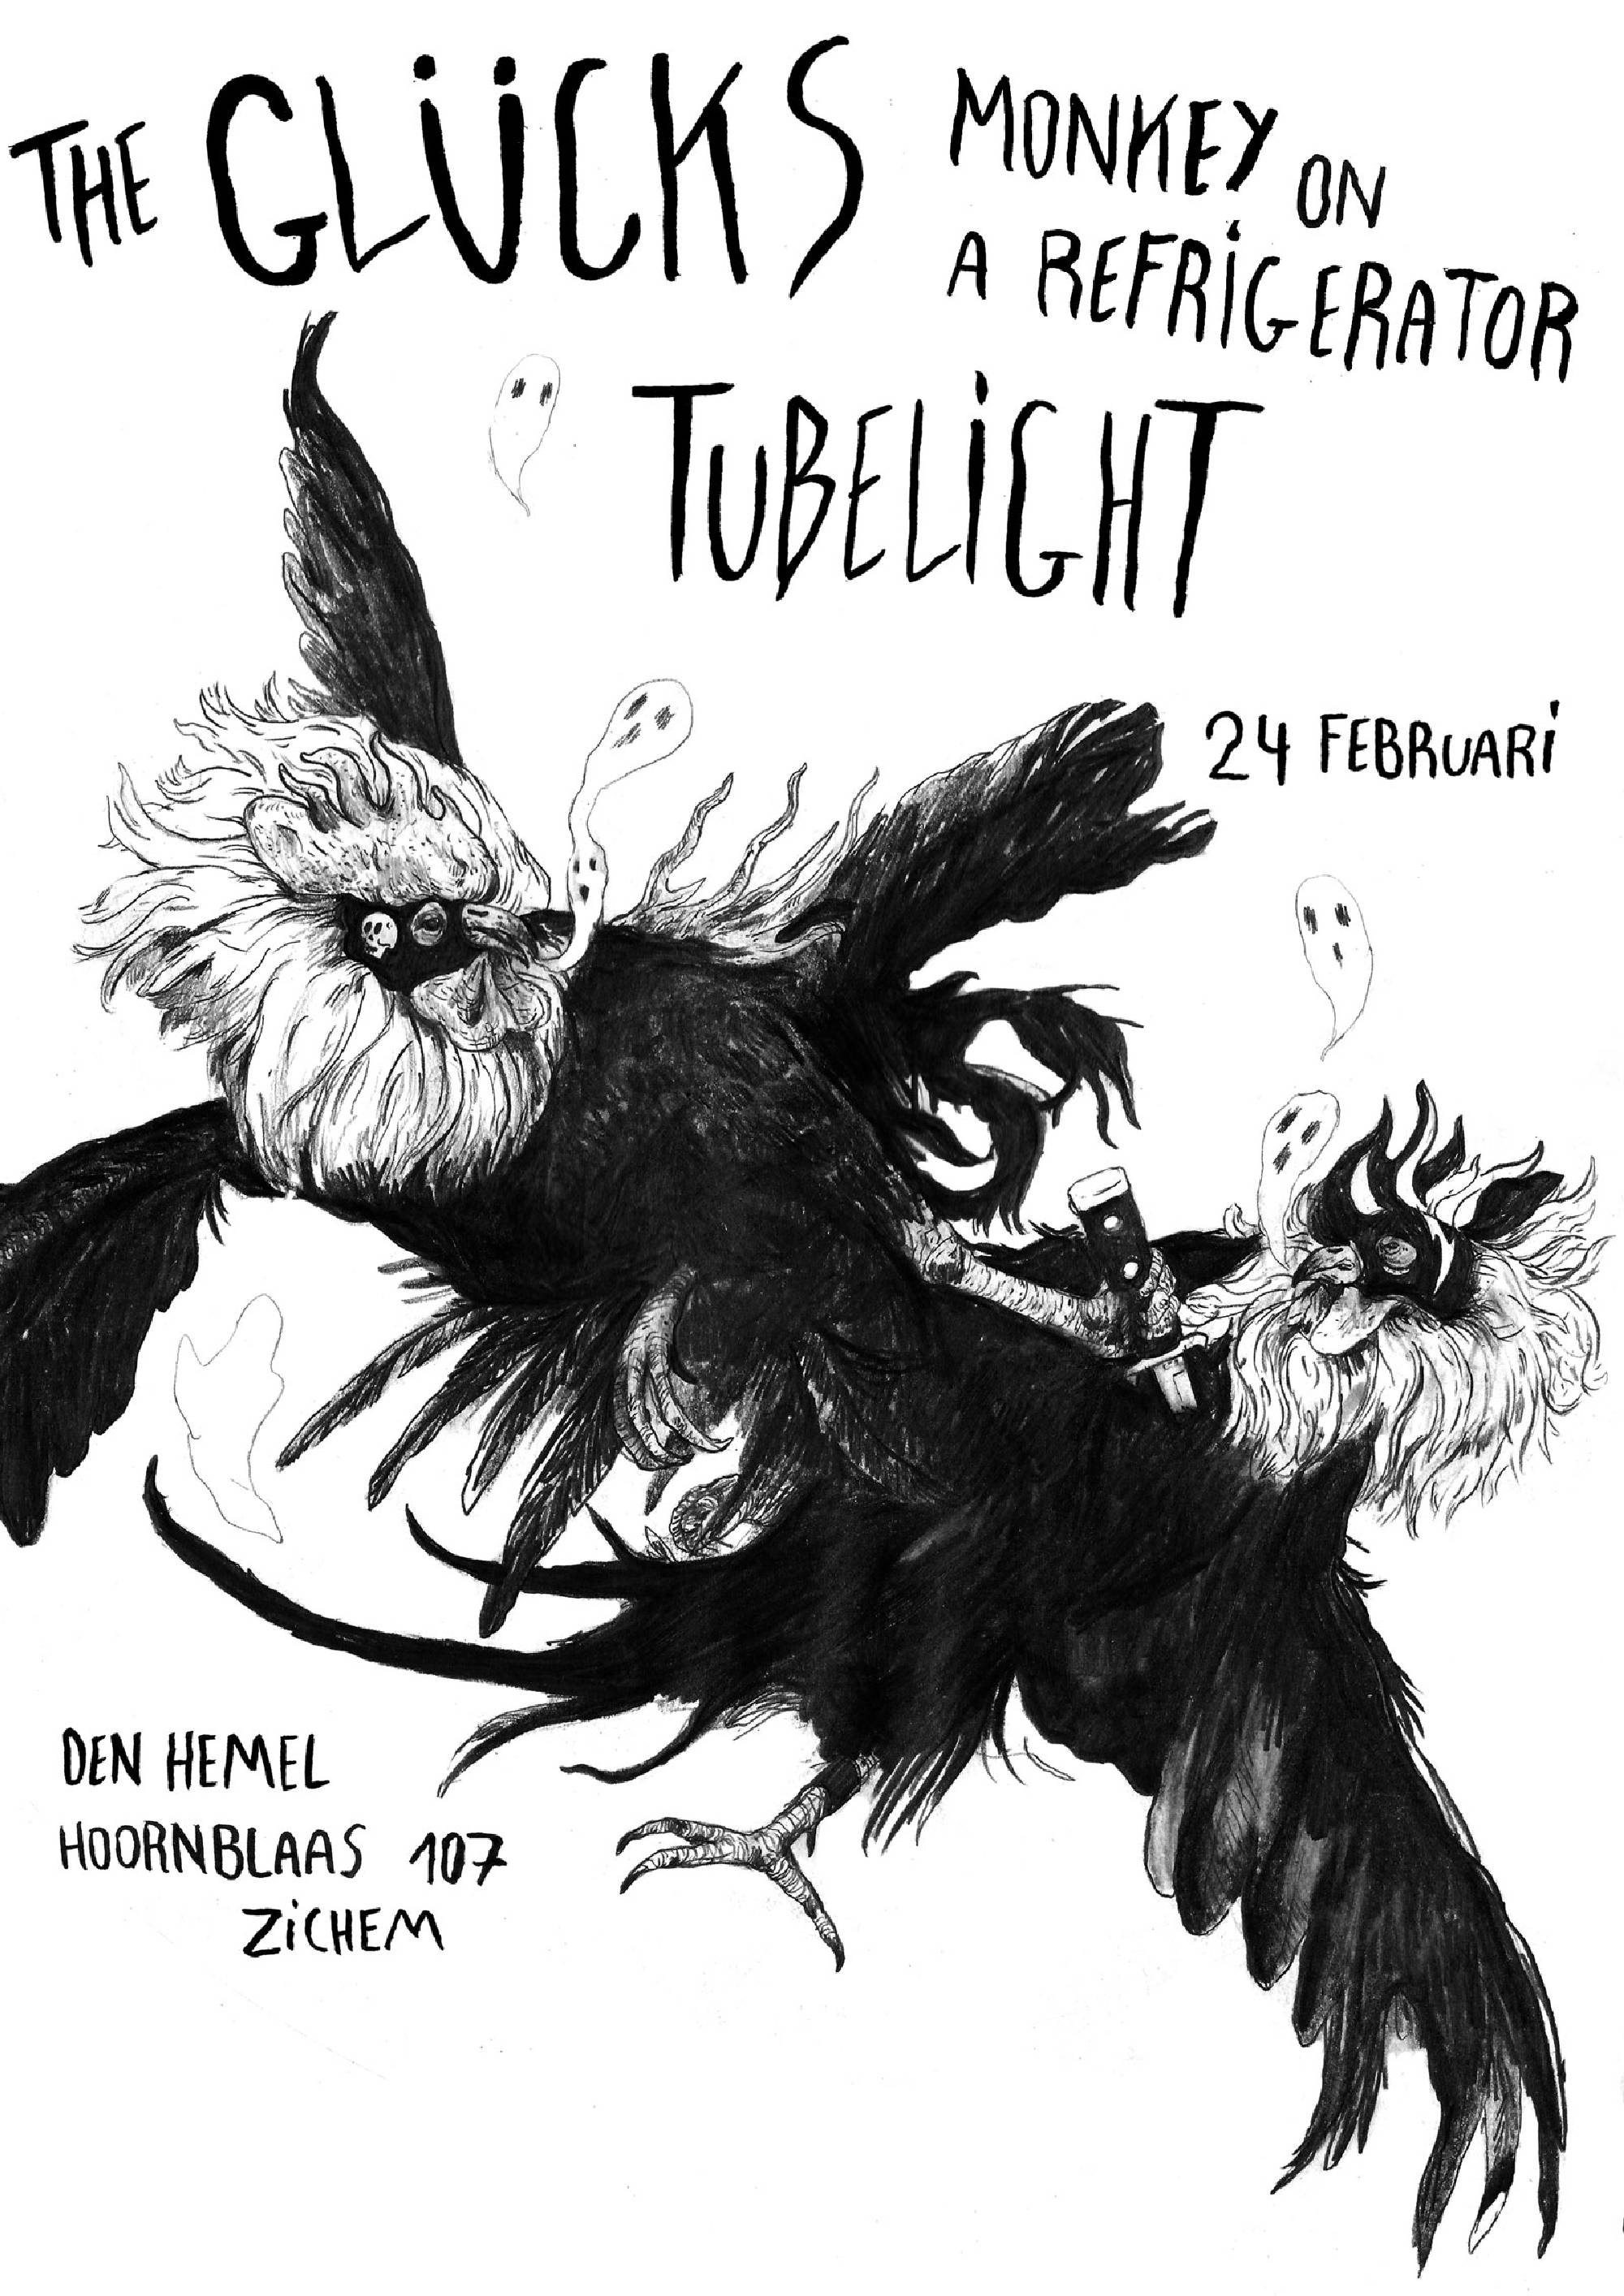 THE GLÜCKS
MONKEY ON
A REFRIGERATOR
TUBELIGHT
24 FEBRUARI
DEN HEMEL
HOORNBLAAS 107
ZICHEM